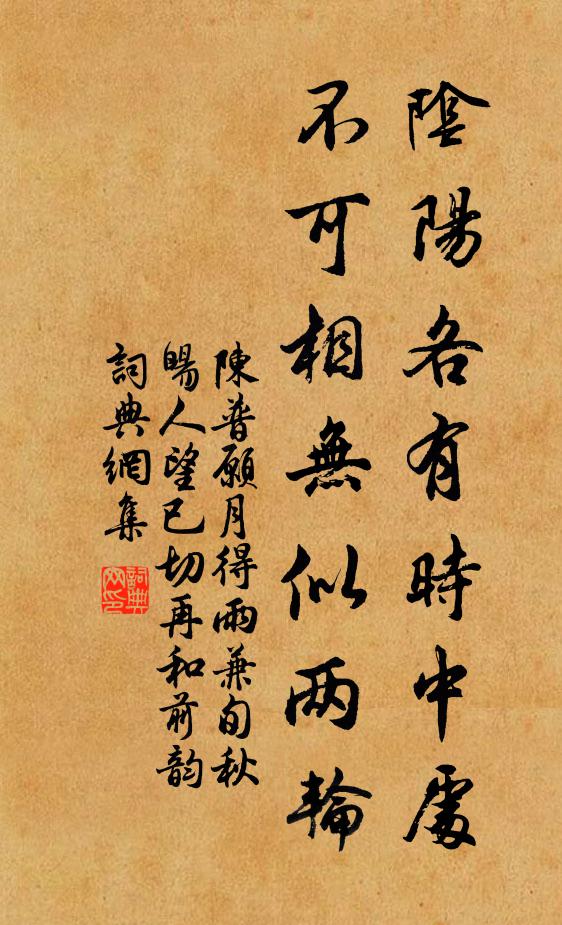 陰陽各有時中處
不可相無似两輪
陳普願月得雨兼旬秋
暘人望已切再和前韵
詞典網集
詞典网印